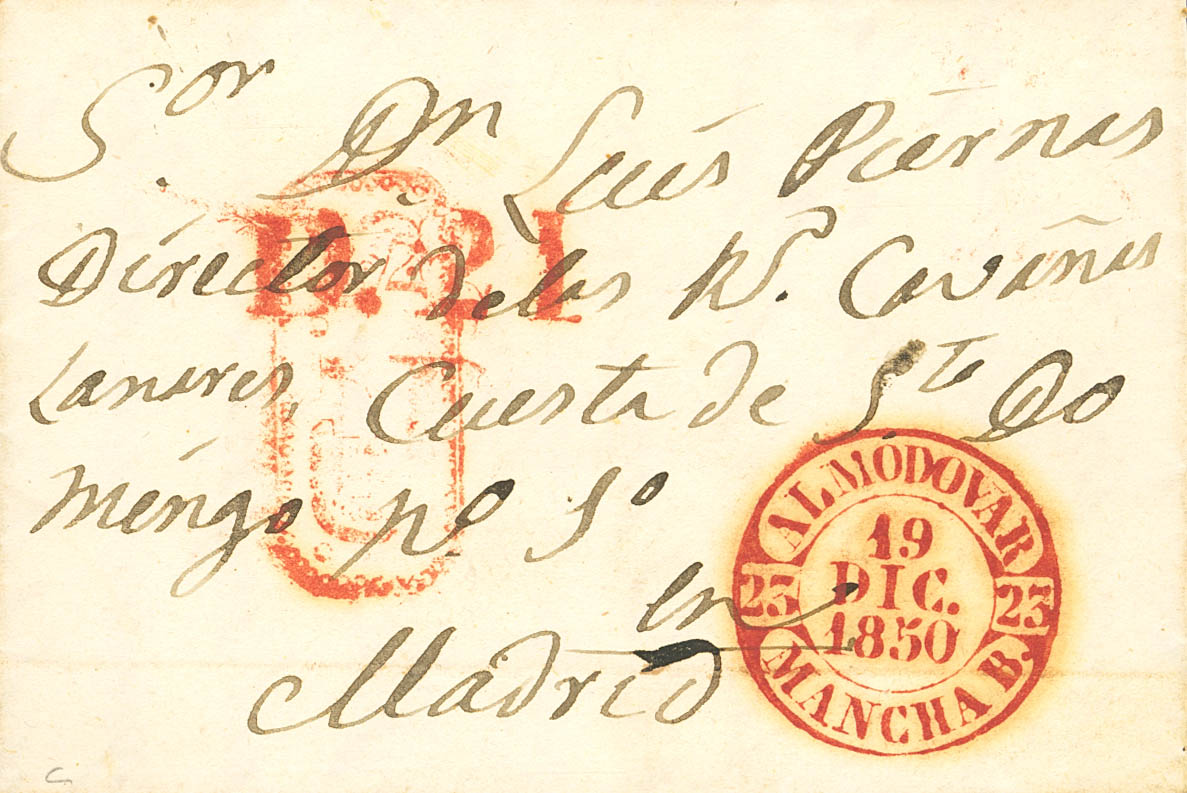 Sor. Dn. Luis Piernas
Director de las Rs. Cavañas
Lanares, Cuesta de Sto Do
mingo no 5o
en
Madrid
ALMODOVAR
19
DIC.
1850
23
23
MANCHA B.